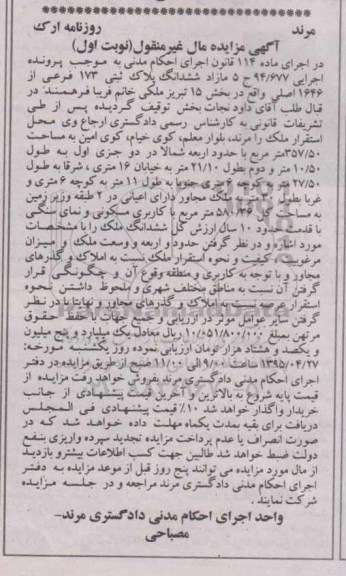 مرند روزنامه ارک
آگهی مزایده مال غیرمنقول(نوبت اول)
در اجرای ماده ۱۱۴ قانون اجرای احکام مدنی به موجب پرونده
اجرایی ۹۴/۶۷۷ ج ۵ مازاد ششدانگ پلاک ثبتی ۱۷۳ فرعی از
۱۶۴۶ اصلی واقع در بخش ۱۵ تبریز ملکی خانم فریبا فرهمند در
قبال طلب آقای داود نجات بخش توقیف گردیده پس از طی
تشریفات قانونی به کارشناس رسمی دادگستری ارجاع وی محل
استقرار ملک را مرند، بلوار معلم، کوی خیام، کوی امین به مساحت
۳۵۷/۵۰متر مربع با حدود اربعه شمالا در دو جزء اول به طول
۱۰/۵۰ متر و دوم بطول ۲۱/۱۰ به خیابان ۱۶ متری ، شرقا به طول
۲۷/۵۰ به کوچه متری جنوبا به طول ۱۱ متر به کوچه ۶ متری و
غربا بطول به ملک مجاور دارای اعیانی در ۲ طبقه وزیر زمین
به مساحت کل ۵۸۰/۳۶ متر مربع با کاربری مسکونی و نمای سنگی
با قدمت حدود ۱۰ سال ارزش کل ششدانگ ملک را با مشخصات
مورد اشاره و در نظر گرفتن حدود و اربعه و وسعت ملک و میزان
مرغوبیت و کیفیت و نحوه استقرار ملک نسبت به املاک و گذرهای
مجاور و با توجه به کاربری و منطقه وقوع آن و چگونگی قرار
گرفتن آن نسبت به مناطق مختلف شهری و ملحوظ داشتن نحوه
استقرار عرصه نسبت به املاک و گذرهای مجاور و نهایتا با در نظر
گرفتن سایر عوامل موثر در ارزیابی و جمیع جهات با حفظ حقوق
مرتهن بمبلغ ۱۰/۰۵۱/۸۰۰/۰۰۰ ریال معادل یک میلیارد و پنج میلیون
و یکصد و هشتاد هزار تومان ارزیابی نموده روز یکشنبه مورخه:
۱۳۹۵/۰۴/۲۷ ساعت ۹/۰۰ الی ۱۱/۰۰ صبح از طریق مزایده در دفتر
اجرای احکام مدنی دادگستری مرند بفروش خواهد رفت مزایده از
قیمت پایه شروع به بالاترین و آخرین قیمت پیشنهادی از جانب
خریدار واگذار خواهد شد ۱۰٪ قیمت پیشنهادی فی المجلس
دریافت برای بقیه بمدت یکماه مهلت داده خواهد شد که در
صورت انصراف یا عدم پرداخت مزایده تجدید سپرده واریزی بنفع
دولت ضبط خواهد شد طالبین جهت کسب اطلاعات بیشترو بازدید
از مال مورد مزایده می توانند پنج روز قبل از موعد مزایده به دفتر
اجرای احکام مدنی دادگستری مرند مراجعه و در جلسه مزایده
شرکت نمایند .
واحد اجرای احکام مدنی دادگستری مرند-
مصباحی